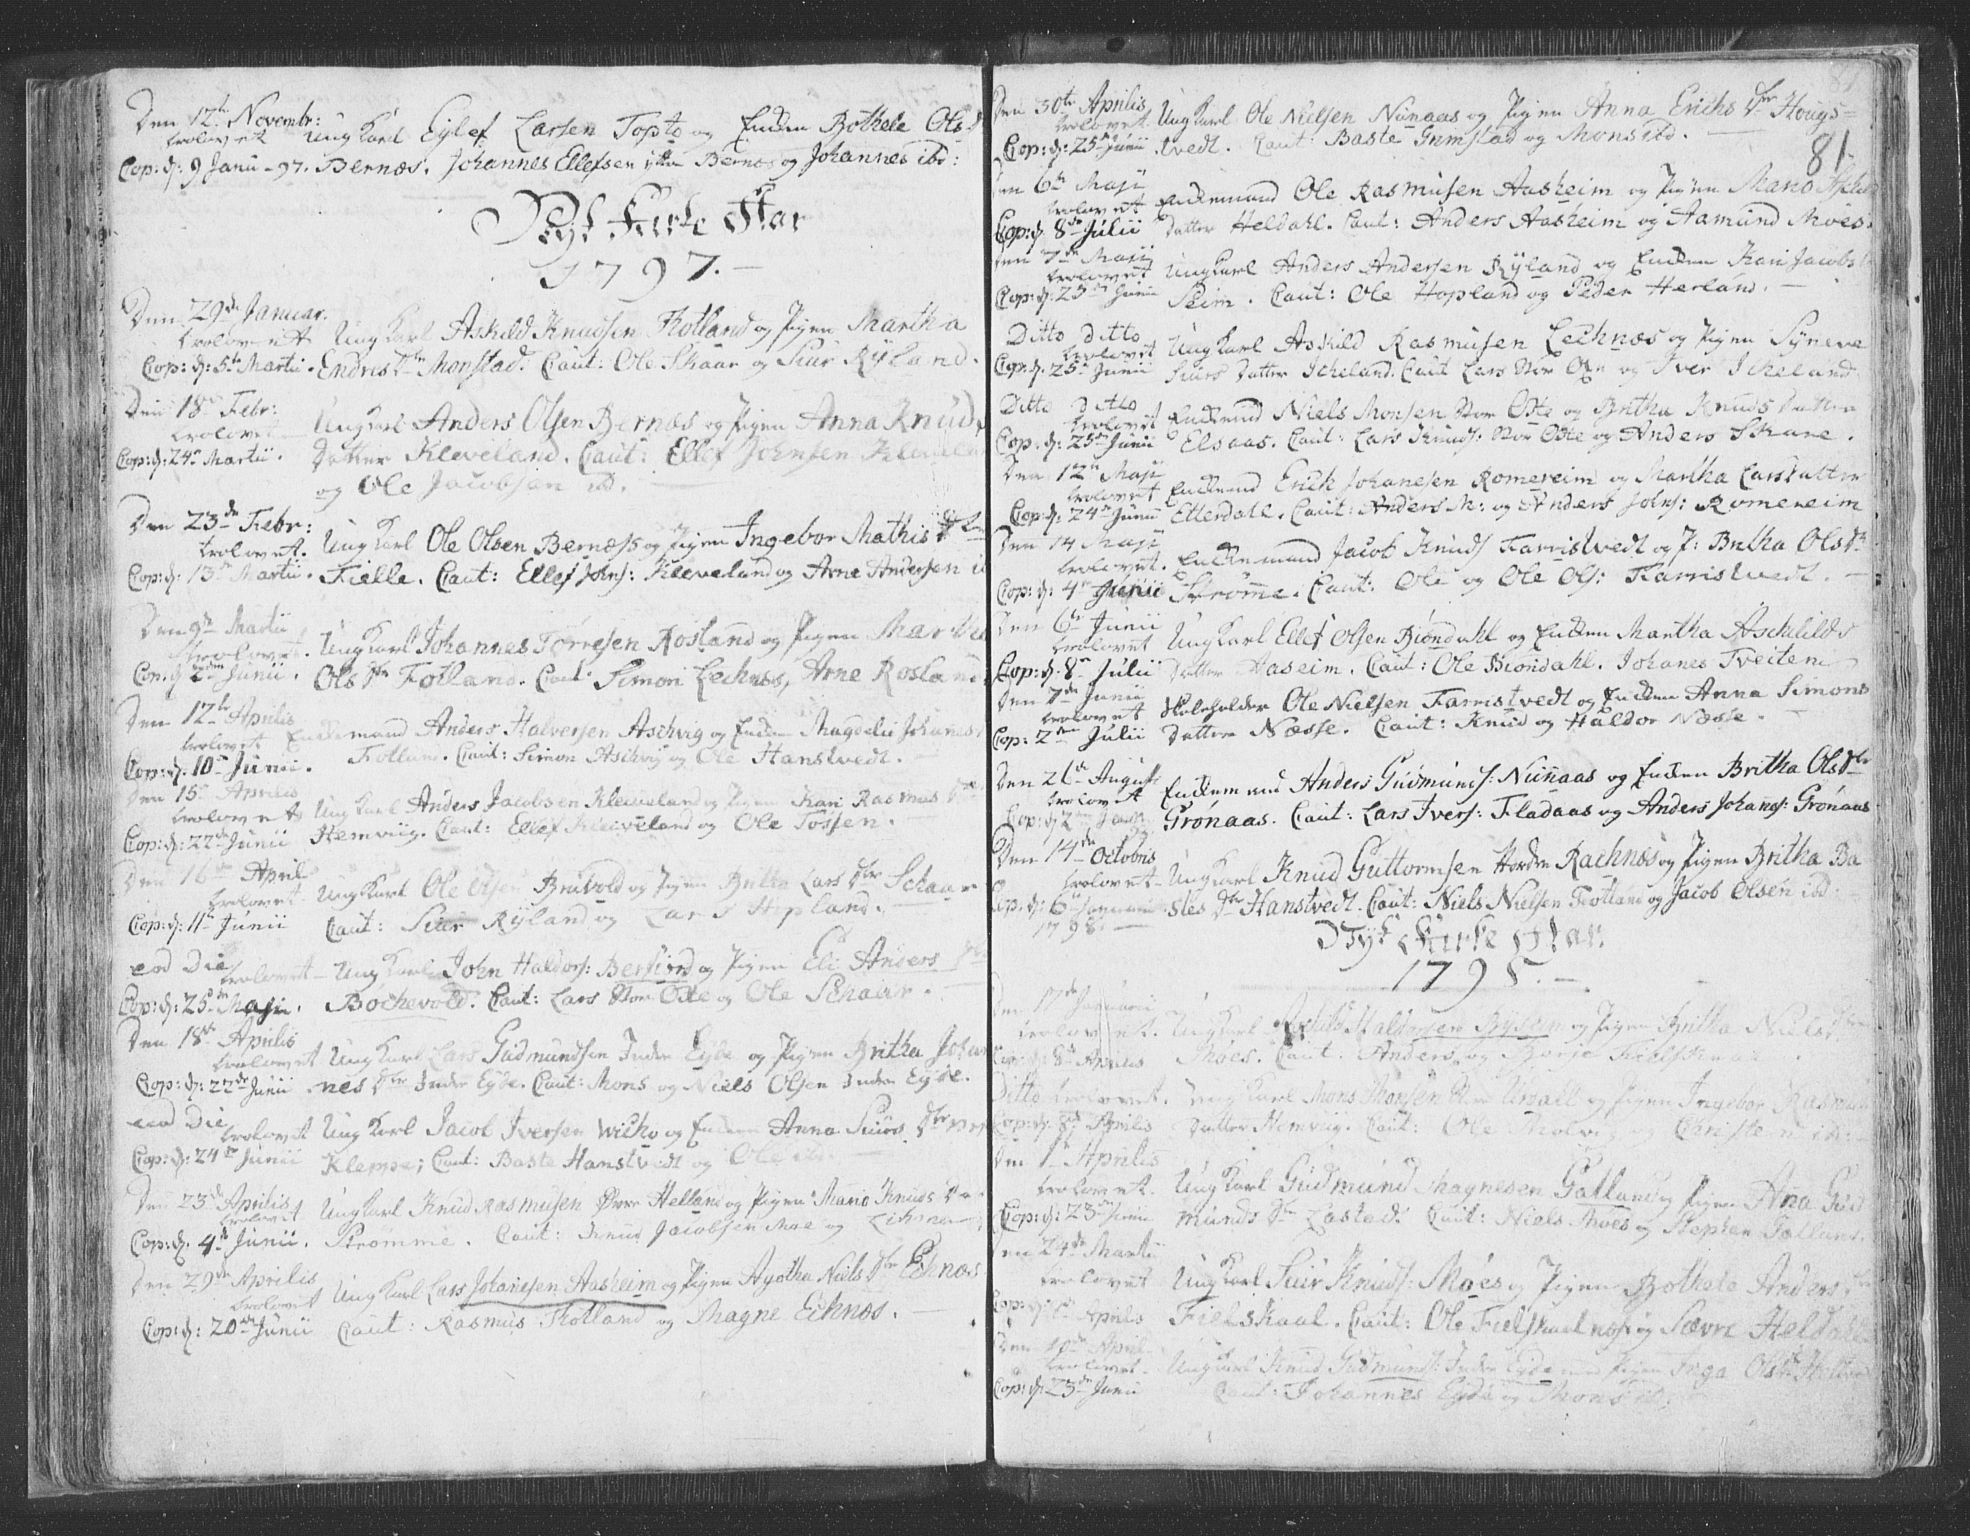 Den 12te Novembr:
trolovet Ung Karl Eylef Larsen Topto og Enken Bothele Ols
Cop: d: 9 Janu - 97. Bernæs. Johannes Ellefsen Bernæs og Johannes ibd:
Nyt Kirke Aar
1797.
Den 29de Januar.
trolovett Ung Karl Askild Knudsen Fotland og Pigen Martha
Cop: d: 5te Martii. Endris dtr Monstad. Caut: Ole Skaar og Siur Ryland.
Den 18de Febr:
trolovet Ung Karl Anders Olsen Bernæs og Pigen Anna Knuds
Cop: d: 24de Martii. Datter Kleveland. Caut: Ellef Johnsen Kleveland
og Ole Jacobsen ibd.
Den 23de Febr:
trolovet. Ung Karl Ole Olsen Bernæs og Pigen Ingebor Mathis dtr
Cop: d: 13de Martii. Fielle. Caut: Ellef Johns: Kleveland og Arne Andersen
Den 9de Martii
trolovet. Ung Karl Johannes Torresen Rosland og Pigen Martha
Cop. d 2den Junii. Ols dtr Fotland. Caut: Simon Lechnes, Arne Rosland
Den 12te Aprilis
trolovet Enkemand Anders Halversen Aschvig og Enken Magdeli Johanes
Cop: d. 10de Junii. Fotland. Caut: Simon Aschvig og Ole Hanstvedt.
Den 15de Aprilis
trolovet Ung Karl Anders Jacobsen Kleiveland og Pigen Kari Rasmus dtr
Cop: d: 22de Junii Hemviig. Caut: Ellef Kleiveland og Ole Tossen.
Den 16de April
trolovet Ung Karl Ole Olsen Bruvold og Pigen Britha Lars dtr Schaar
Cop: d: 11te Junii Caut: Siur Ryland og Lars Hopland.
eod Die
trolovet Ung Karl John Haldors: Berfiord og Pigen Eli Anders
Cop: d: 25de Maji. Böchevold. Caut: Lars Stor Oxe og Ole Schaar.
Den 18de Aprilis
trolovet Ung Karl Lars Gudmundsen Indre Eyde og Pigen Britha Johan
Cop: d: 22de Junii nes dtr Indre Eyde. Caut: Mons og Niels Olsen Indre Eyde.
eod Die
trolovet Ung Karl Jacob Iversen Wicho og Enken Anna Siurs dtr
Cop: d: 24de Junii Klempe; Caut: Baste Hanstvedt og Ole ibd.
Den 23de Aprilis
trolovet Ung Karl Knud Rasmusen Øvre Helland og Pigen Mario Knuds
Cop: d. 4de Junii. Strömme. Caut: Knud Jacobsen Moe og
Den 29de Aprilis
trolovet Ung Karl Lars Johanesen Aasheim og Pigen Agatha Niels dtr Echnæs
Cop: d: 20de Junii Caut: Rasmus Fotland og Magne Echnæs.
81
Den 30te Aprilis
trolovet. Ung Karl Ole Nielsen Nunaas og Pigen Anna Erichs dtr Hougs-
Cop: d: 25de Junii tvedt. Caut: Baste Grimstad og Mons ibd.
Den 6te Maji
trolovet Enkemand Ole Rasmusen Aasheim og Pigen Mario
Cop: d. 8de Julii Datter Heldahl. Caut: Anders Aasheim og Aamund Moes.
Den 7de Maji
trolovet Ung Karl Anders Andersen Ryland og Enken Kari Jacobs
Cop: d: 25de Junii Seim. Caut: Ole Hopland og Peder Herland.
Ditto ditto
trolovet Ung Karl Askild Rasmusen Lechnæs og Pigen Syneve
Cop: d. 25de Junii Siurs Datter Icheland. Caut Lars Stor Oxe og Iver Icheland
Ditto ditto
trolovet Enkemd Niels Monsen Stor Oxe og Britha Knuds Datter
Cop: d: 25de Junii Elsaas. Caut: Lars Knuds: Stor Oxe og Anders Skare.
Den 12te Maji
trolovet Enkemd Erick Johanesen Romereim og Martha Lars Datter
Cop: d: 24de Junii Etterdahl. Caut: Anders M: og Anders Johns: Romereim
Den 14 Maji
trolovet. Enkemand Jacob Knuds Farristvedt og P: Britha Ols dtr
Cop: d: 4de Junii Strömme. Caut: Ole og Ole Ols: Farristvedt.
Den 6te Junii
trolovet Ung Karl Ellef Olsen Biöndahl og Enken Martha Aschilds
Cop: d. 8de Julii Datter Aaseim. Caut: Ole Biöndahl. Johanes Tveiten
Den 7de Junii
trolovet Skoleholder Ole Nielsen Farristvedt og Enken Anna Simons
Cop: 2den Julii Datter Næsse. Caut: Knud og Haldor Næsse.
Den 21de August
trolovet Enkemand Anders Gudmunds: Nunaas og Enken Britha Ols dtr
Grönaas. Caut: Lars Ivers: Fladaas og Anders Johans: Grönaas
Den 14de Octobris
trolovet Ung Karl Knud Guttormsen Nordre Rachnes og Pigen Britha Ba
Cop. d: 6te Januari stes dtr Hanstvedt. Caut: Niels Nielsen Fotland og Jacob Olsen ibd:
1798.
Nyt Kirke Aar.
1798.
Den 17de Januarii
trolovet. Ung Karl Haldorsen og Pigen Britha Niels
Cop: d: 8de Aprilis Moes. Caut: Anders og Börje Fielskaal.
Ditto trolovet. Ung Karl Mons Monsen og Pigen Ingebor Rasmus
Cop: d: 8de Aprilis Datter Hemviig. Caut: Ole og Christen ib:
Den 1te Aprilis
trolovet. Ung Karl Gudmund Magnesen Gotland og Pigen Ana Gud
Cop: d: 23de Junii munds dtr Lasted. Caut: Niels Moes og Stephen Fotland.
Den 24de Martii
trolovet Ung Karl Siur Knuds: Moes og Pigen Bothele Anders dtr
Aprilis Fielskaal. Caut: Ole Fielskaalnæs og Sævre Heldahl
Den 10de April
trolovet. Ung Karl Knud Gudmunds: Indre Eyde og Pigen Inga Ols dtr
Cop: d: 23de Junii Caut: Johannes Eyde og Mons ib: